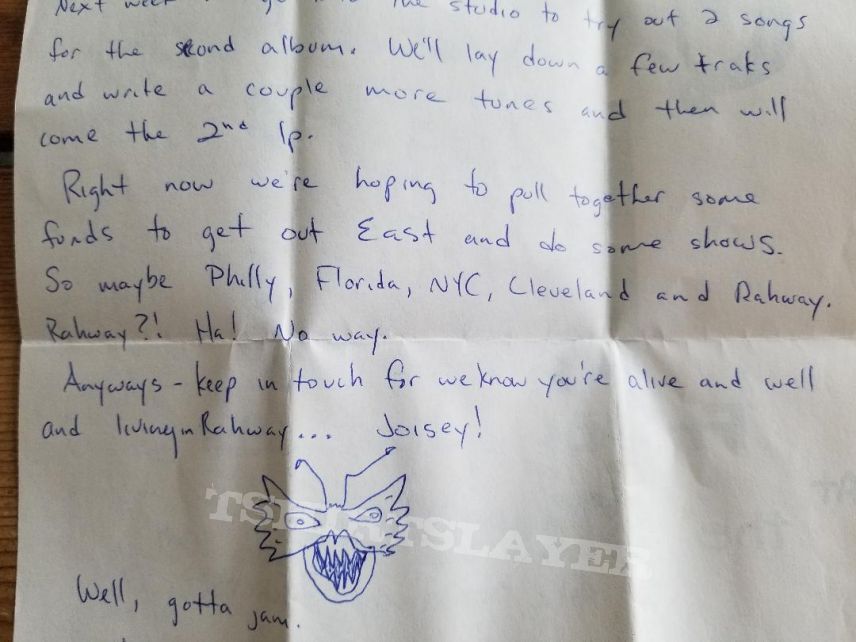 Next week the studio to try out 2 songs
for the second album. We'll lay down a few traks
and write a couple more tunes and then will
come the 2nd lp.
Right now we're hoping to pull together some
funds to get out East and do some shows.
So maybe Philly, Florida, NYC, Cleveland and Rahway.
Rahway?! Ha! No way.
Anyways - keep in touch for we know you're alive and well
and living in Rahway... Joisey!
TSHIRTSLAYER
Well, gotta jam.